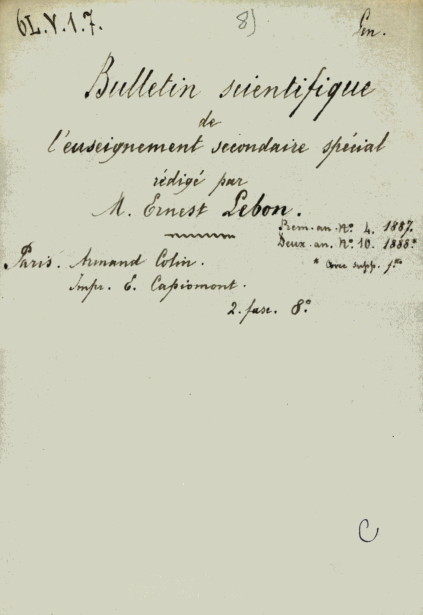 6L.V.1.7.
8)
Lin.
Bulletin scientifique
de
l'enseignement secondaire spécial
rédigé par
M. Ernest Lebon.
Prem. an. Nº 4. 1887.
Deux. an. Nº 10. 1888*
Paris. Armand Colin.
* avec supp.
Impr. E. Capiomont.
2. fasc. 8º
C